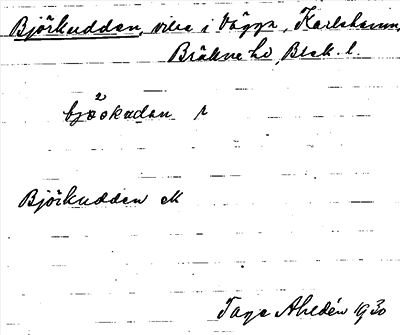 Björkudden, villa i Vägga, Karlshamn,
Bräkne hd, Blek. l.
bjö²økudan r
Björkudden M
Tage Ahldén 1930